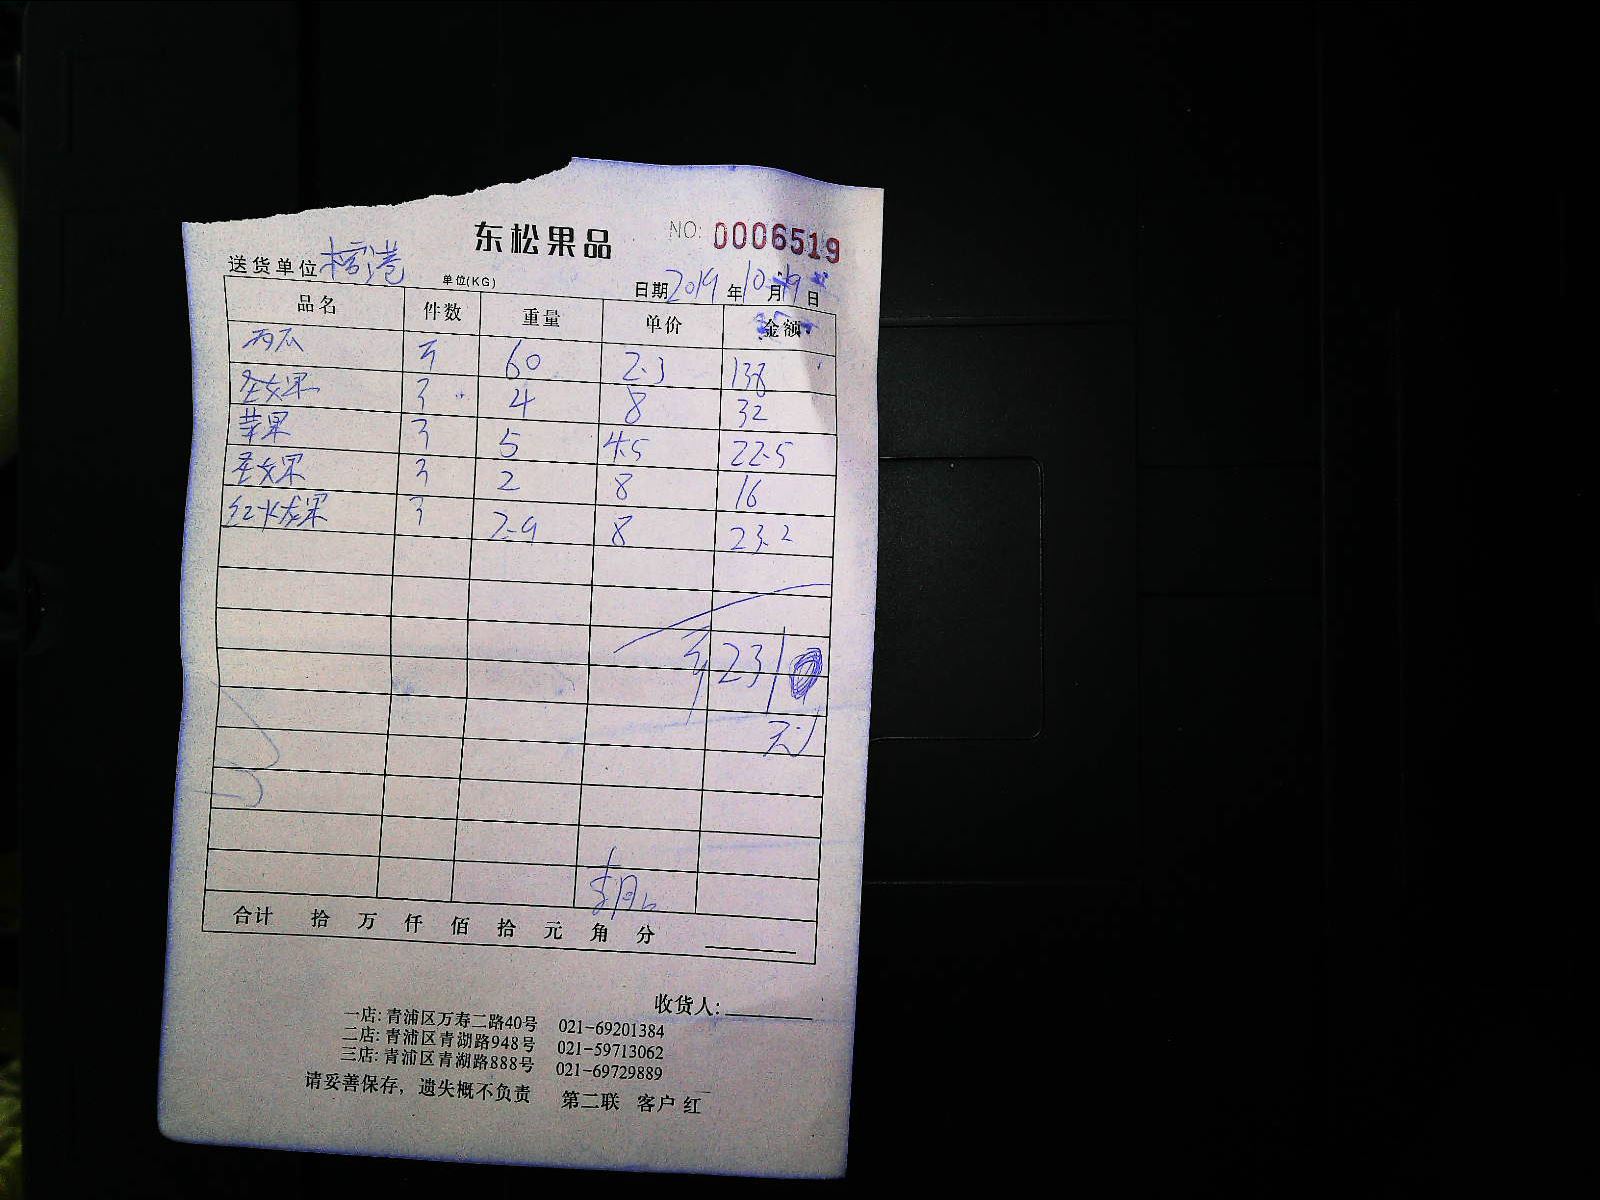 东松果品 NO: 0006519
送货单位 单位(KG) 日期 2019 年 10 月 19 日
品名 件数 重量 单价 金额
西瓜 60 2.3 138
圣女果 3 4 8 32
苹果 3 5 4.5 22.5
圣女果 3 2 8 16
红火龙果 3 2.9 8 23.2
231
元
合计 拾 万 仟 佰 拾 元 角 分
收货人:
一店: 青浦区万寿二路40号 021-69201384
二店: 青浦区青湖路948号 021-59713062
三店: 青浦区青湖路888号 021-69729889
请妥善保存，遗失概不负责 第二联 客户 红